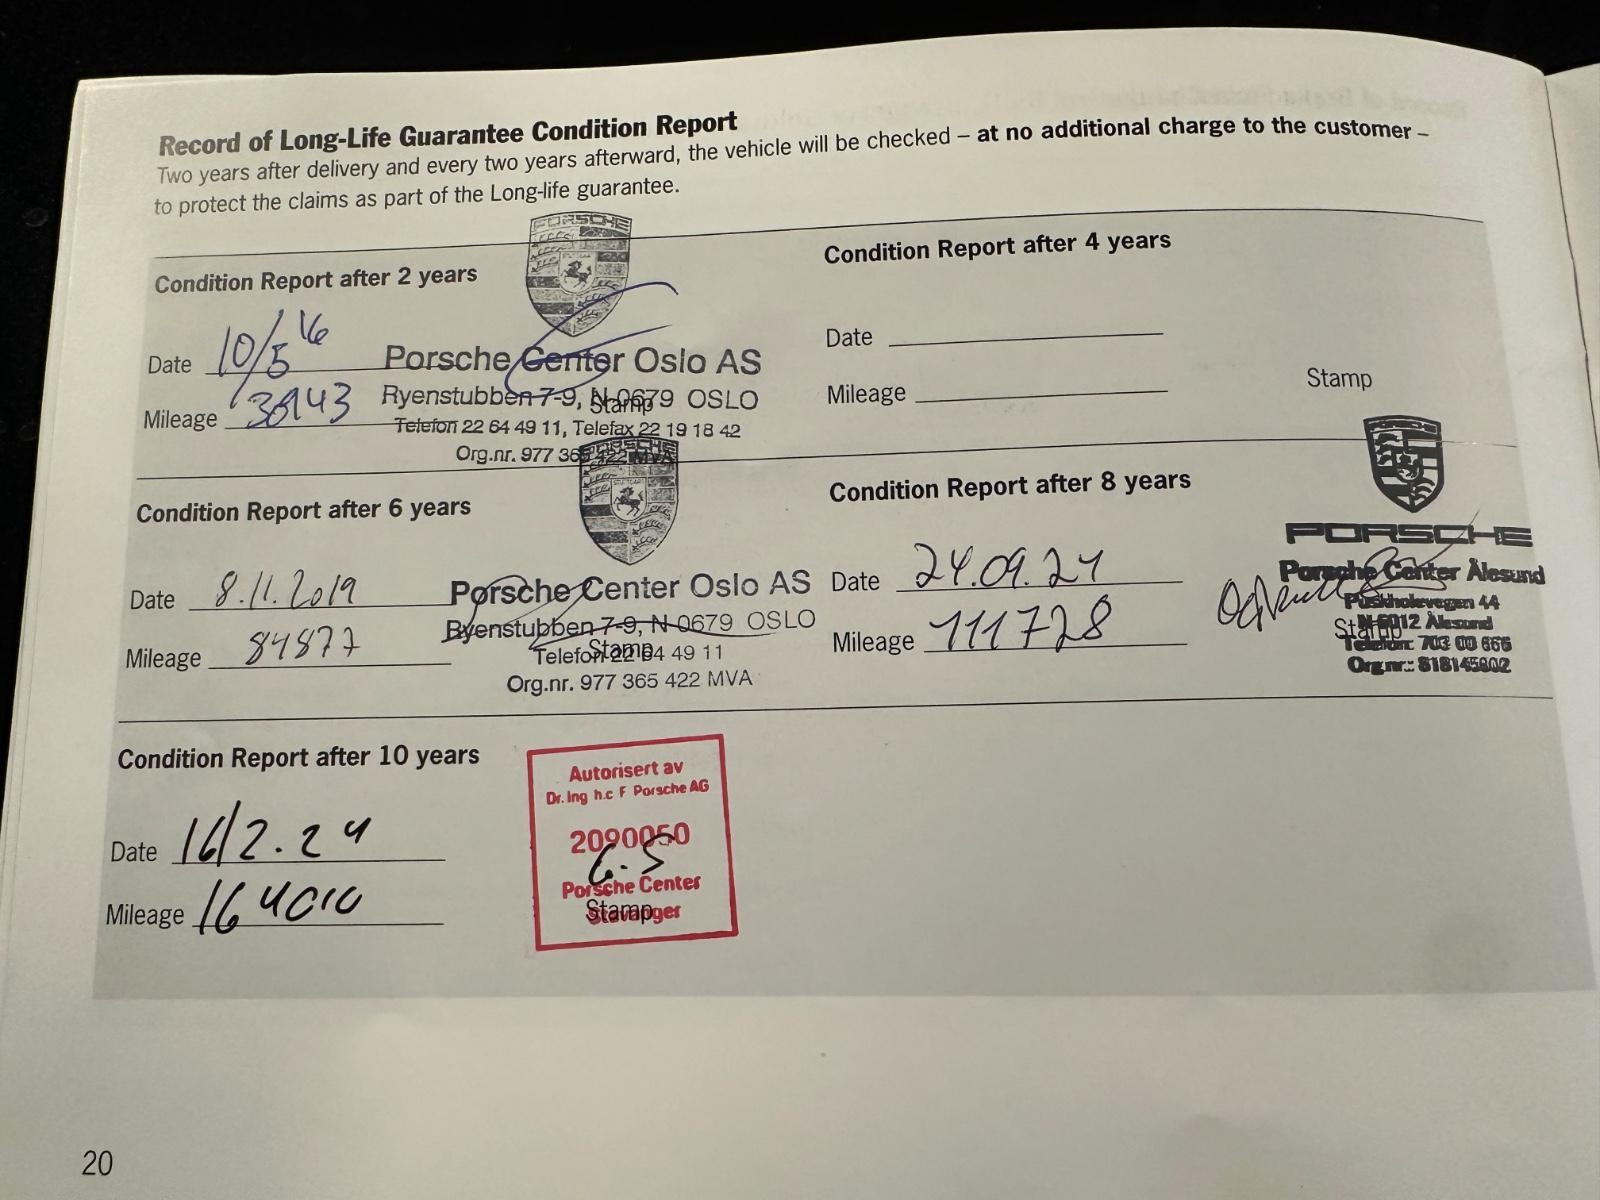 Record of Long-Life Guarantee Condition Report
Two years after delivery and every two years afterward, the vehicle will be checked – at no additional charge to the customer –
to protect the claims as part of the Long-life guarantee.
PORSCHE
Condition Report after 2 years
Date 10/5 16
Mileage
Porsche Center Oslo AS
Ryenstubben 7-9, N-0679 OSLO
Stamp
Telefon 22 64 49 11, Telefax 22 19 18 42
Org.nr. 977 365 422 MVA
Condition Report after 4 years
Date
Mileage
Stamp
Condition Report after 6 years
PORSCHE
Date 8.11.2019
Mileage 84877
Porsche Center Oslo AS
Ryenstubben 7-9, N-0679 OSLO
Stamp
Telefon 22 64 49 11
Org.nr. 977 365 422 MVA
Condition Report after 8 years
Date 24.09.21
Mileage 111728
PORSCHE
PORSCHE
Porsche Center Ålesund
44
N-6012 Ålesund
Stamp
Telefon: 703 00 666
Org.nr.: 818145802
Condition Report after 10 years
Date 16/2.24
Mileage 164010
Autorisert av
Dr. Ing h.c F Porsche AG
2090050
G.S
Porsche Center
Stavanger
Stamp
20